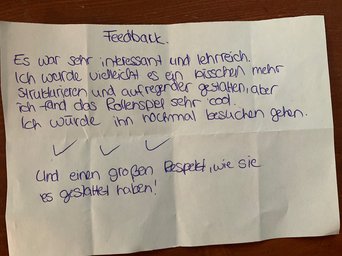 Feedback.
Es war sehr interessant und lehrreich.
Ich würde vielleicht es ein bisschen mehr
strukturieren und aufregender gestalten, aber
ich fand das Rollenspiel sehr cool.
Ich würde ihn nochmal besuchen gehen.
Und einen großen Respekt, wie sie
es gestaltet haben!